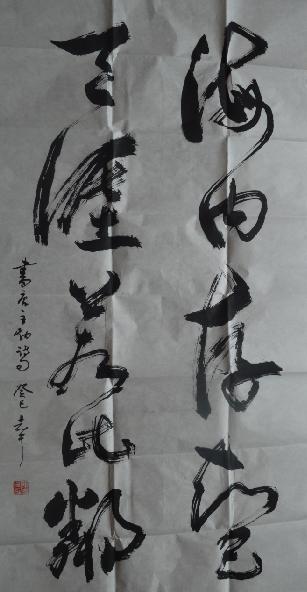 海内存知己
天涯若比邻
癸巳